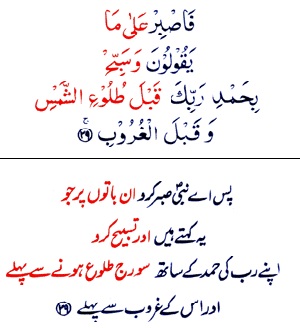 فَاصْبِرْ عَلٰى مَا
يَقُوْلُوْنَ وَسَبِّحْ
بِحَمْدِ رَبِّكَ قَبْلَ طُلُوْعِ الشَّمْسِ
وَ قَبْلَ الْغُرُوْبِ ۚ ﴿۳۹﴾
پس اے نبیؐ صبر کرو ان باتوں پر جو
یہ کہتے ہیں اور تسبیح کرو
اپنے رب کی حمد کے ساتھ سورج طلوع ہونے سے پہلے
اور اس کے غروب سے پہلے ﴿۳۹﴾